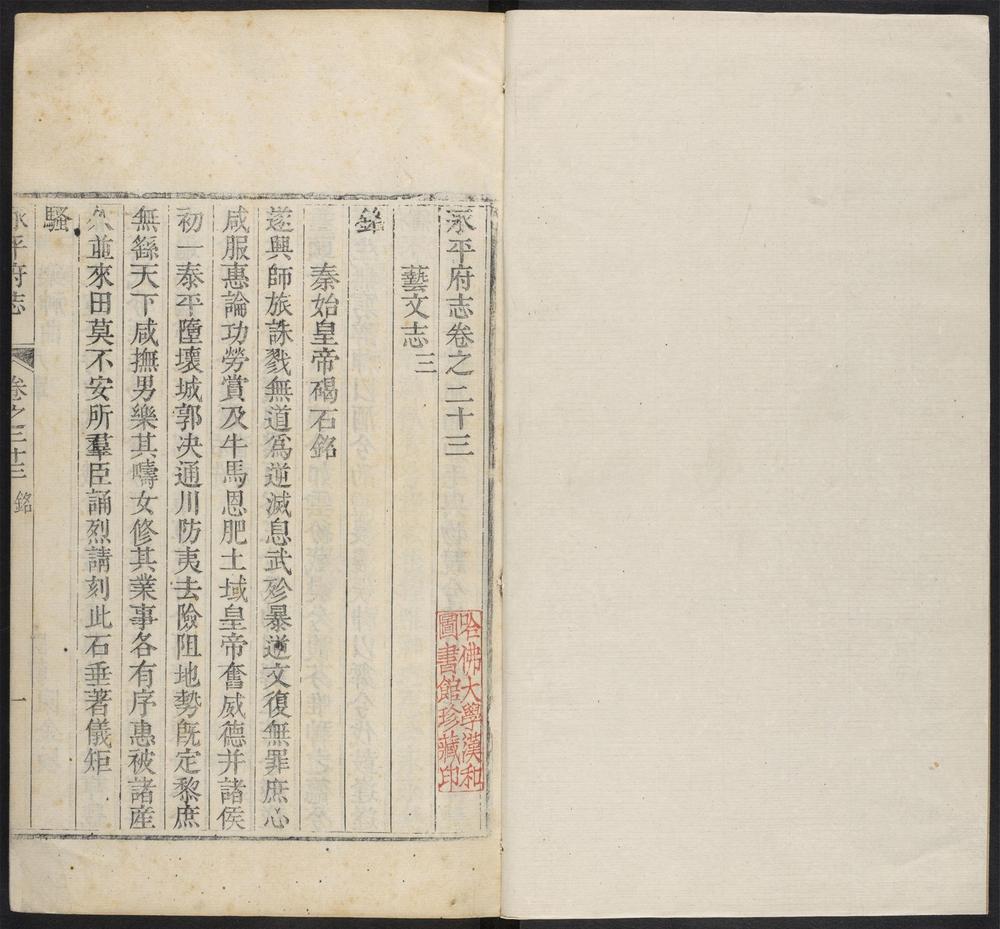 永平府志卷之二十三
藝文志三
銘
秦始皇帝碣石銘
遂興師旅誅戮無道爲逆滅息武殄暴逆文復無罪庶心
咸服惠論功勞賞及牛馬恩肥土域皇帝奮威德并諸侯
初一泰平墮壞城郭决通川防夷去險阻地勢旣定黎庶
無繇天下咸撫男樂其疇女修其業事各有序惠被諸產
久並來田莫不安所羣臣誦烈請刻此石垂著儀矩
騷
永平府志
卷之二十三
銘
一
哈佛大學漢和
圖書館珍藏印